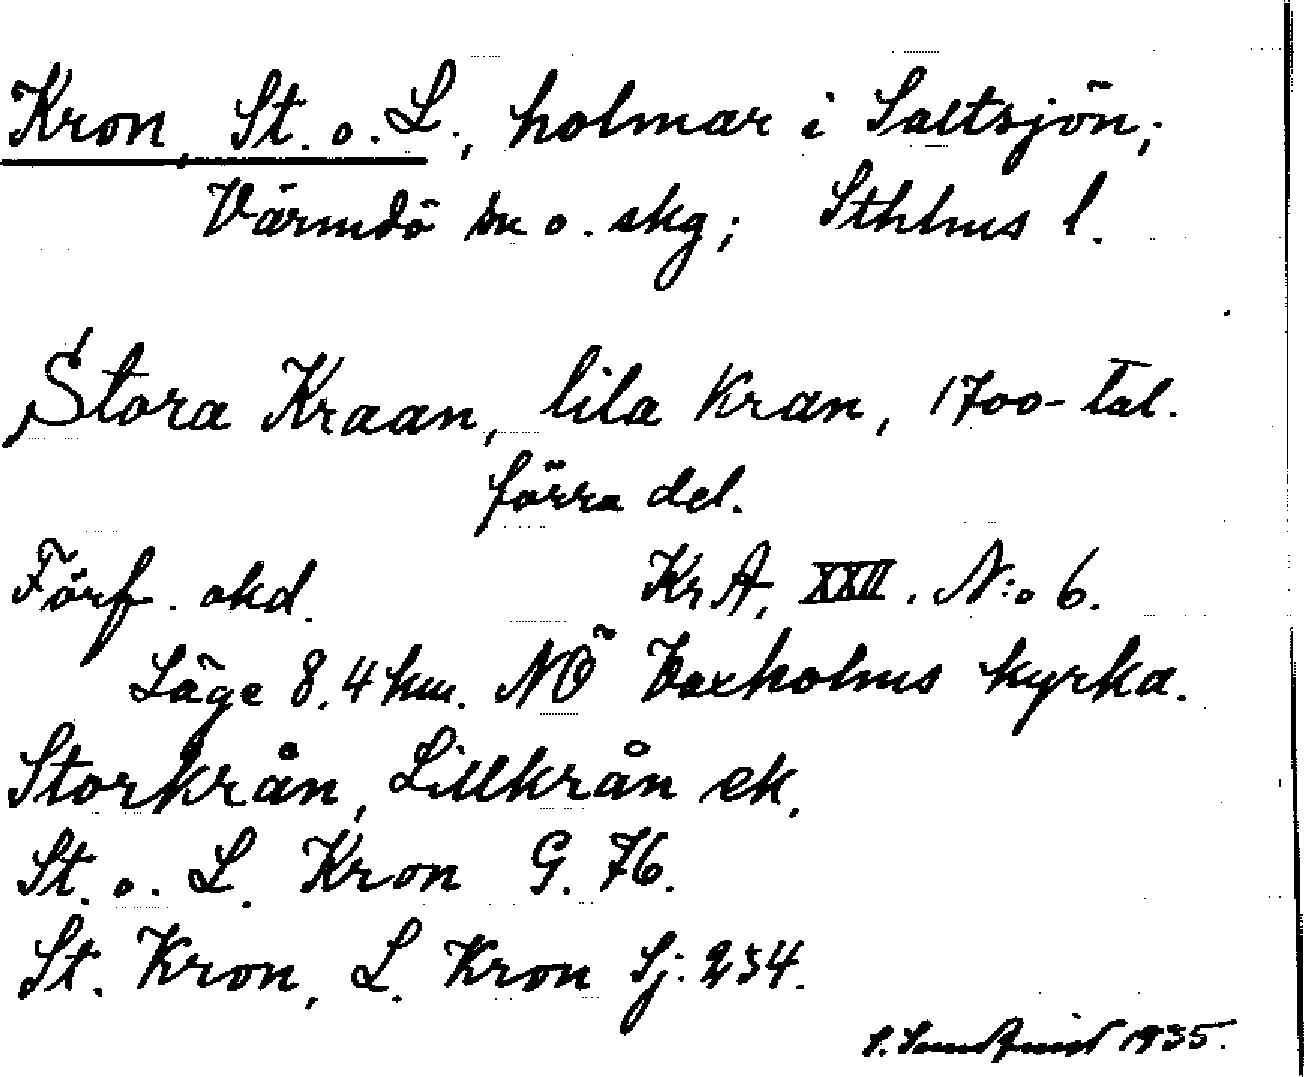 Kron, St. o. L., holmar i Saltsjön;
Värmdö sn o. skg; Sthlms l.
Stora Kraan, lila Kran, 1700-tal.
förra del.
Förf. okd. KrA, XXII. N:o 6.
Läge 8,4 km. NÖ Vaxholms kyrka.
Storkrån, Lillkrån ek.
St. o. L. Kron G. 76.
St. Kron, L. Kron Sj. 234.
1935.